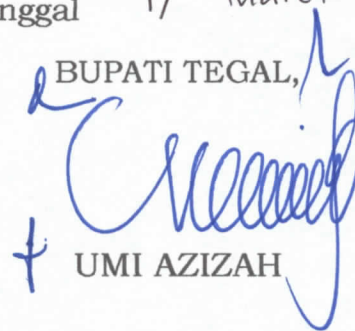 nggal 17 Maret
BUPATI TEGAL,
UMI AZIZAH